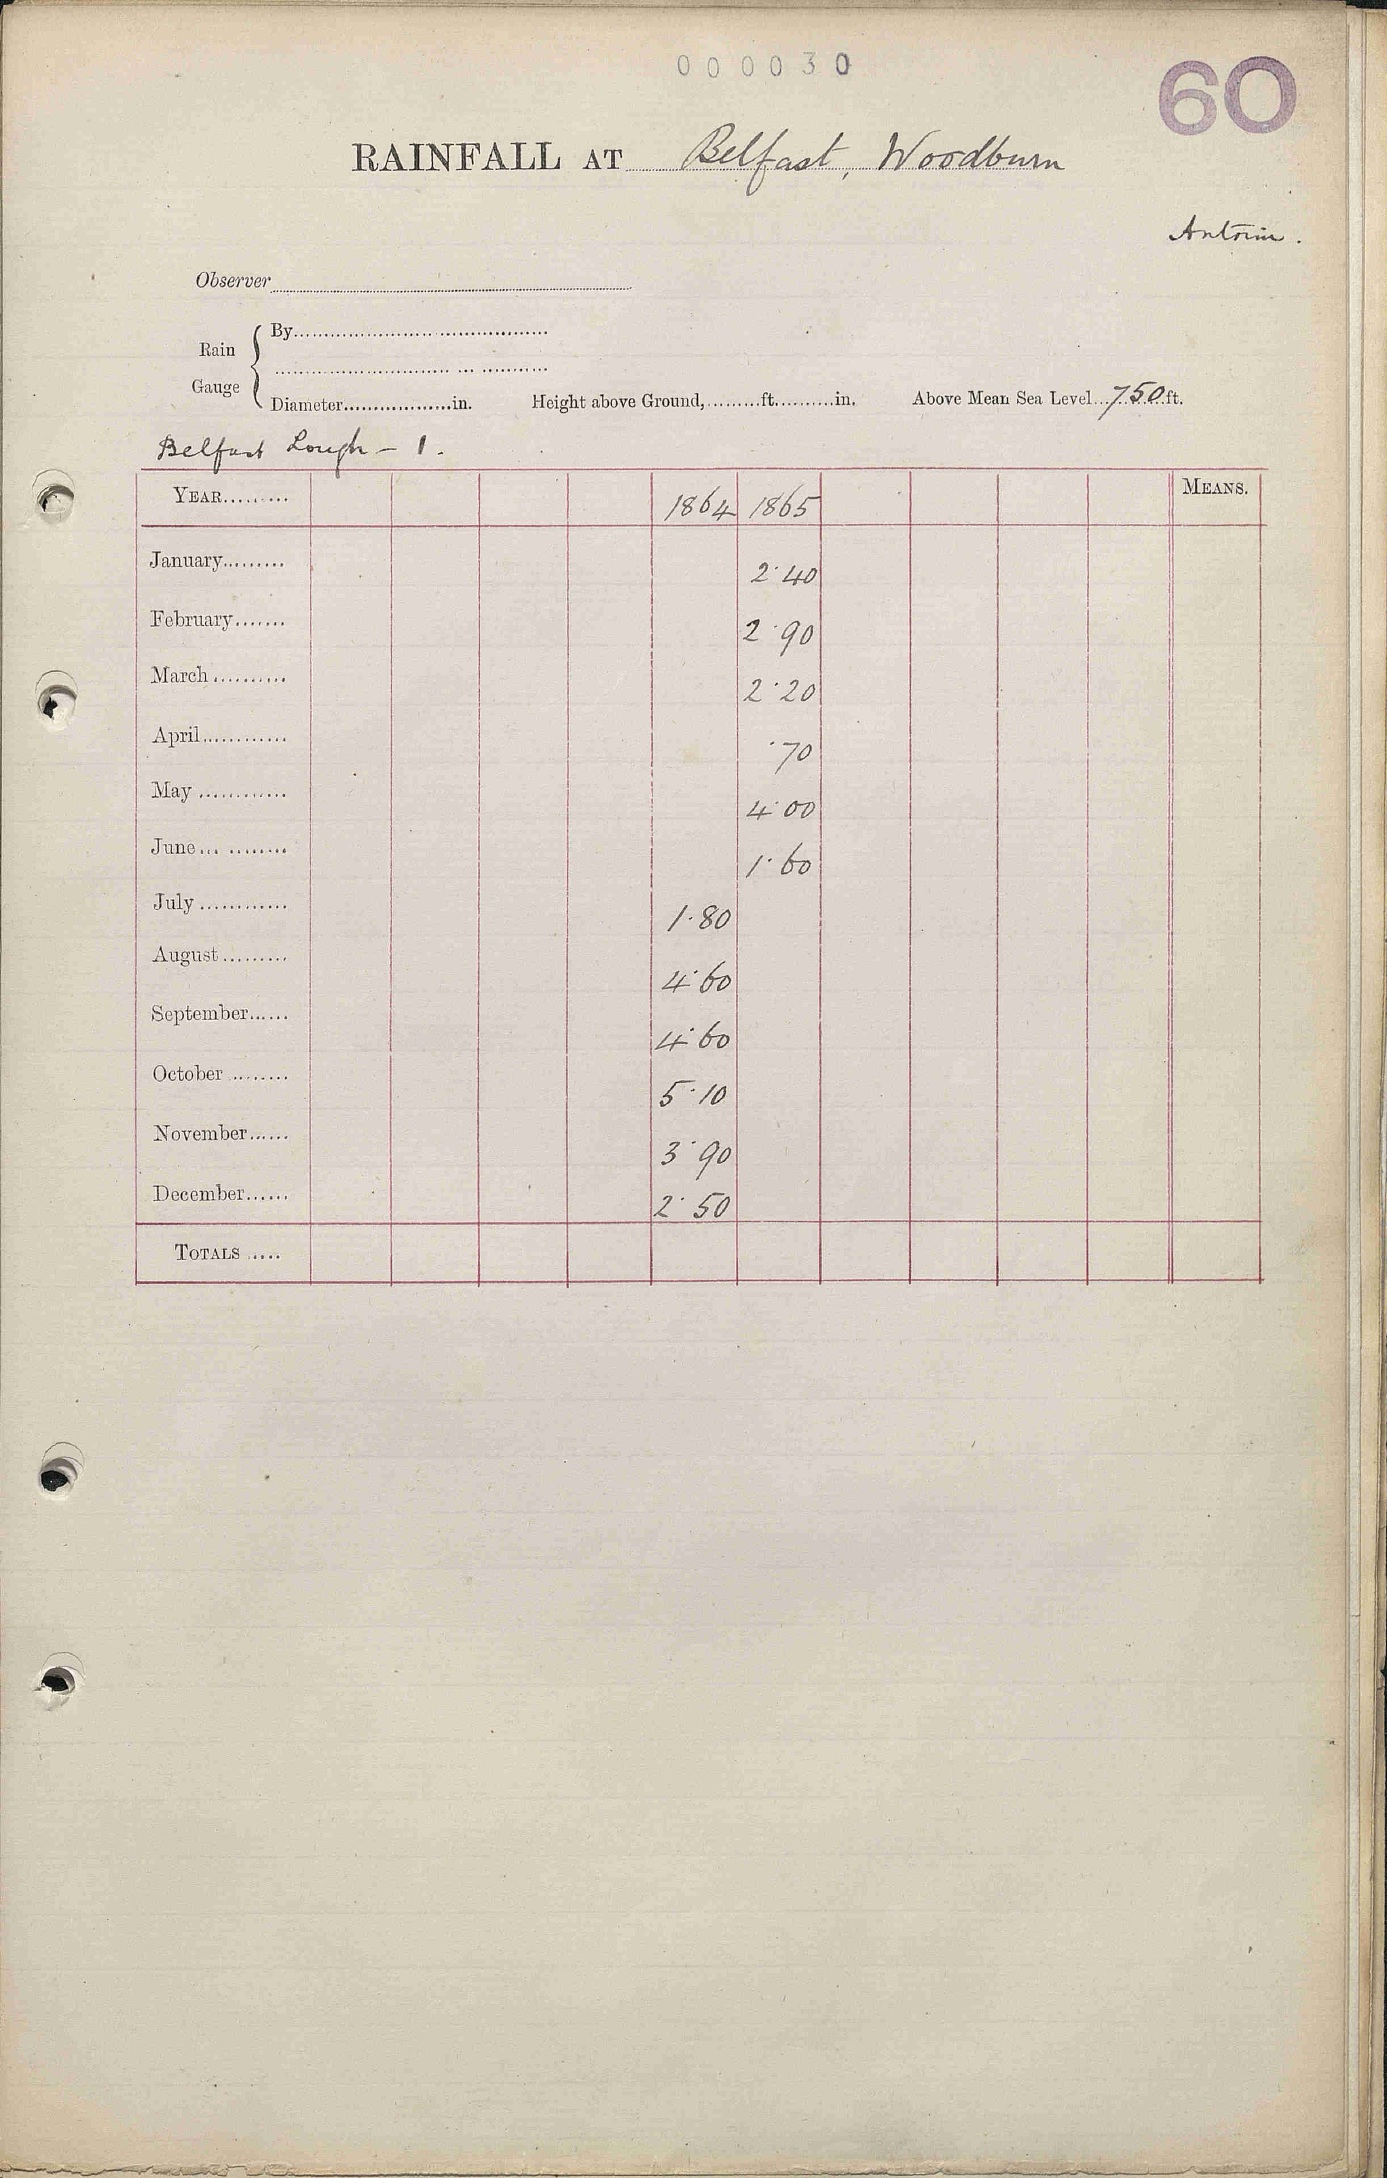 000030
60
RAINFALL AT Belfast, Woodburn
Antrim.
Observer
Rain Gauge
By
Diameter in. Height above Ground, ft. in. Above Mean Sea Level 750 ft.
Belfast Lough – 1.
YEAR 1864 1865 MEANS.
January 2.40
February 2.90
March 2.20
April .70
May 4.00
June 1.60
July 1.80
August 4.60
September 4.60
October 5.10
November 3.90
December 2.50
TOTALS